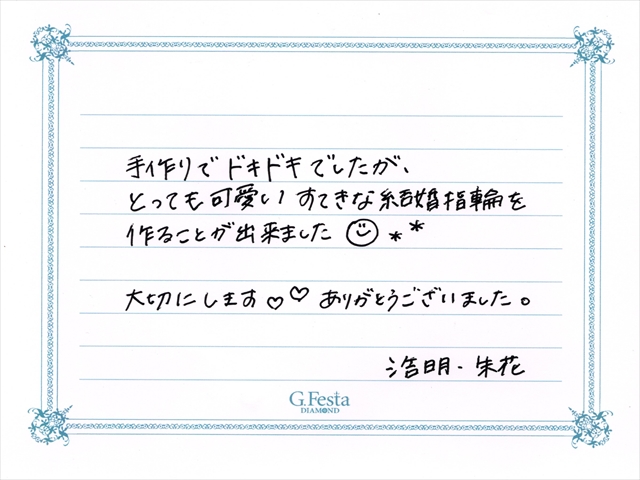 手作りでドキドキでしたが、
とっても可愛いすてきな結婚指輪を
作ることが出来ました
大切にします♡♡ ありがとうございました。
浩明・朱花
G.Festa
DIAMOND